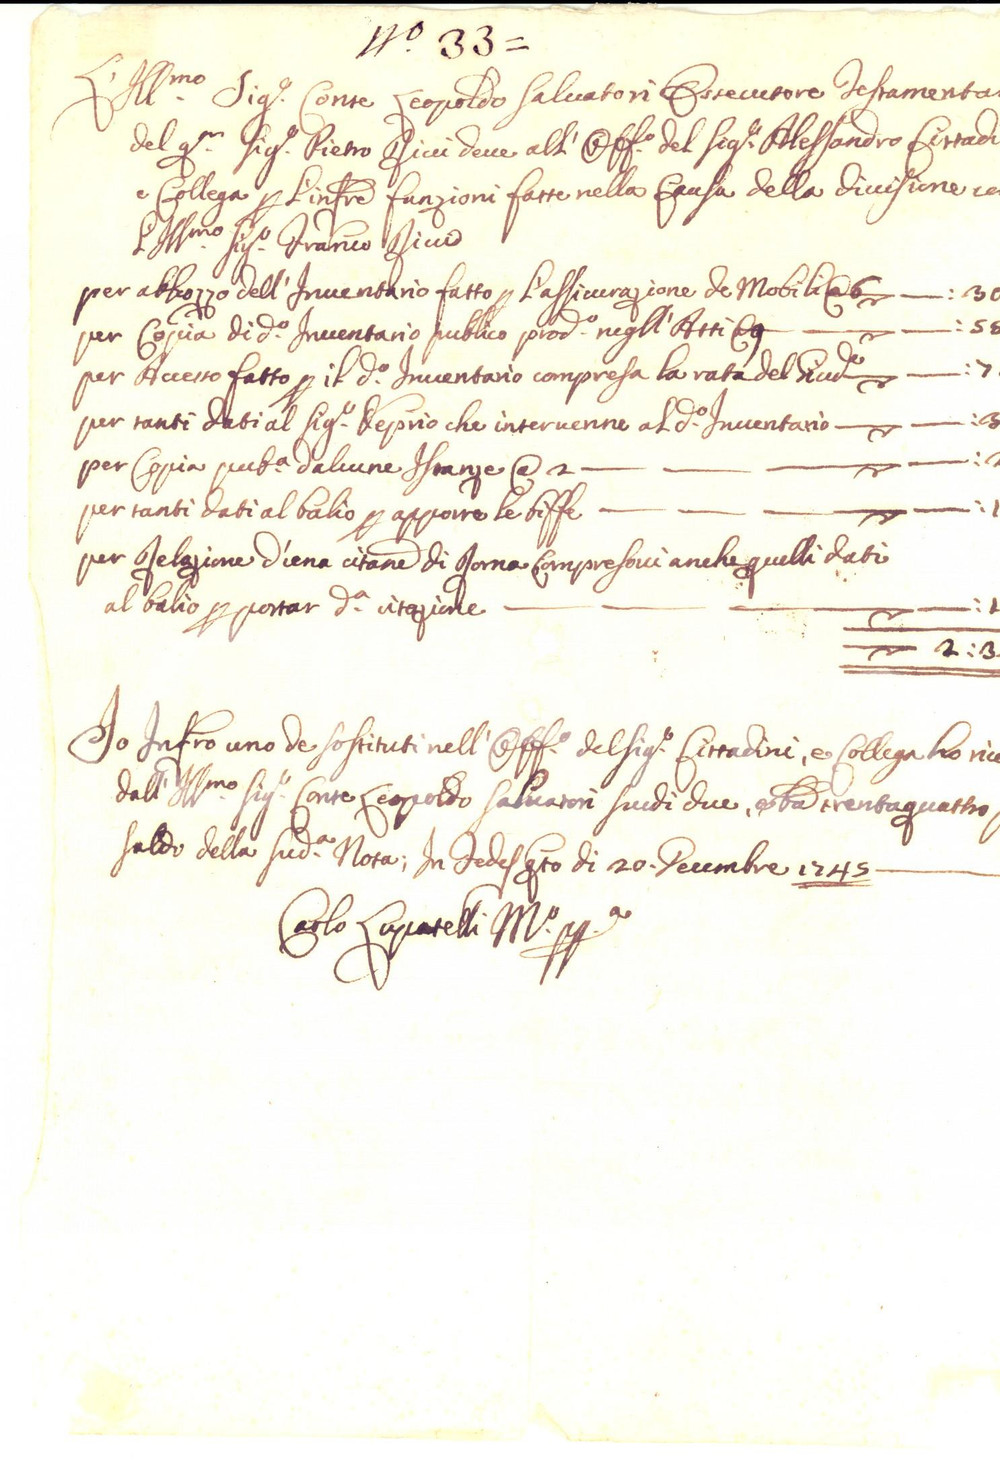 N.º 33=
L'Ill.mo Sig.r Conte Leopoldo Salvatori Essecutore Testamentar
del q.m Sig.r Pietro Ricci deve all' Off.o del Sig.r Alessandro Cittadi
e Collega p l'infre funzioni fatte nella Causa della divisione
l'Ill.mo Sig.r Franco Ricci
per abbozzo dell' Inventario fatto p l'assicurazione de Mobili @ 6 — : 30
per Copia di d.o Inventario publico prod.o negl' Atti @ 9 — — : 58
per Accesso fatto p il d.o Inventario compresa la rata del Giud.e — : 7
per tanti dati al Sig.r Deprio che intervenne al d.o Inventario — — : 3
per Copia pub.a d'alcune Istanze @ 2 — — — — : 2
per tanti dati al balio p apporre le biffe — — — — : 1
per Relazione d'una citane di Roma compresovi anche quelli dati
al balio p portar d.a citazione — — — — : 1
2 : 3
Io Infro uno de sostituti nell' Off.o del Sig.r Cittadini, e Collega ho rice
dall' Ill.mo Sig.r Conte Leopoldo Salvatori scudi due, e ba trentaquattro p
saldo della sud.a Nota; In fede q.to di 20. Decembre 1745 —
Carlo Luparelli M.o pp.a